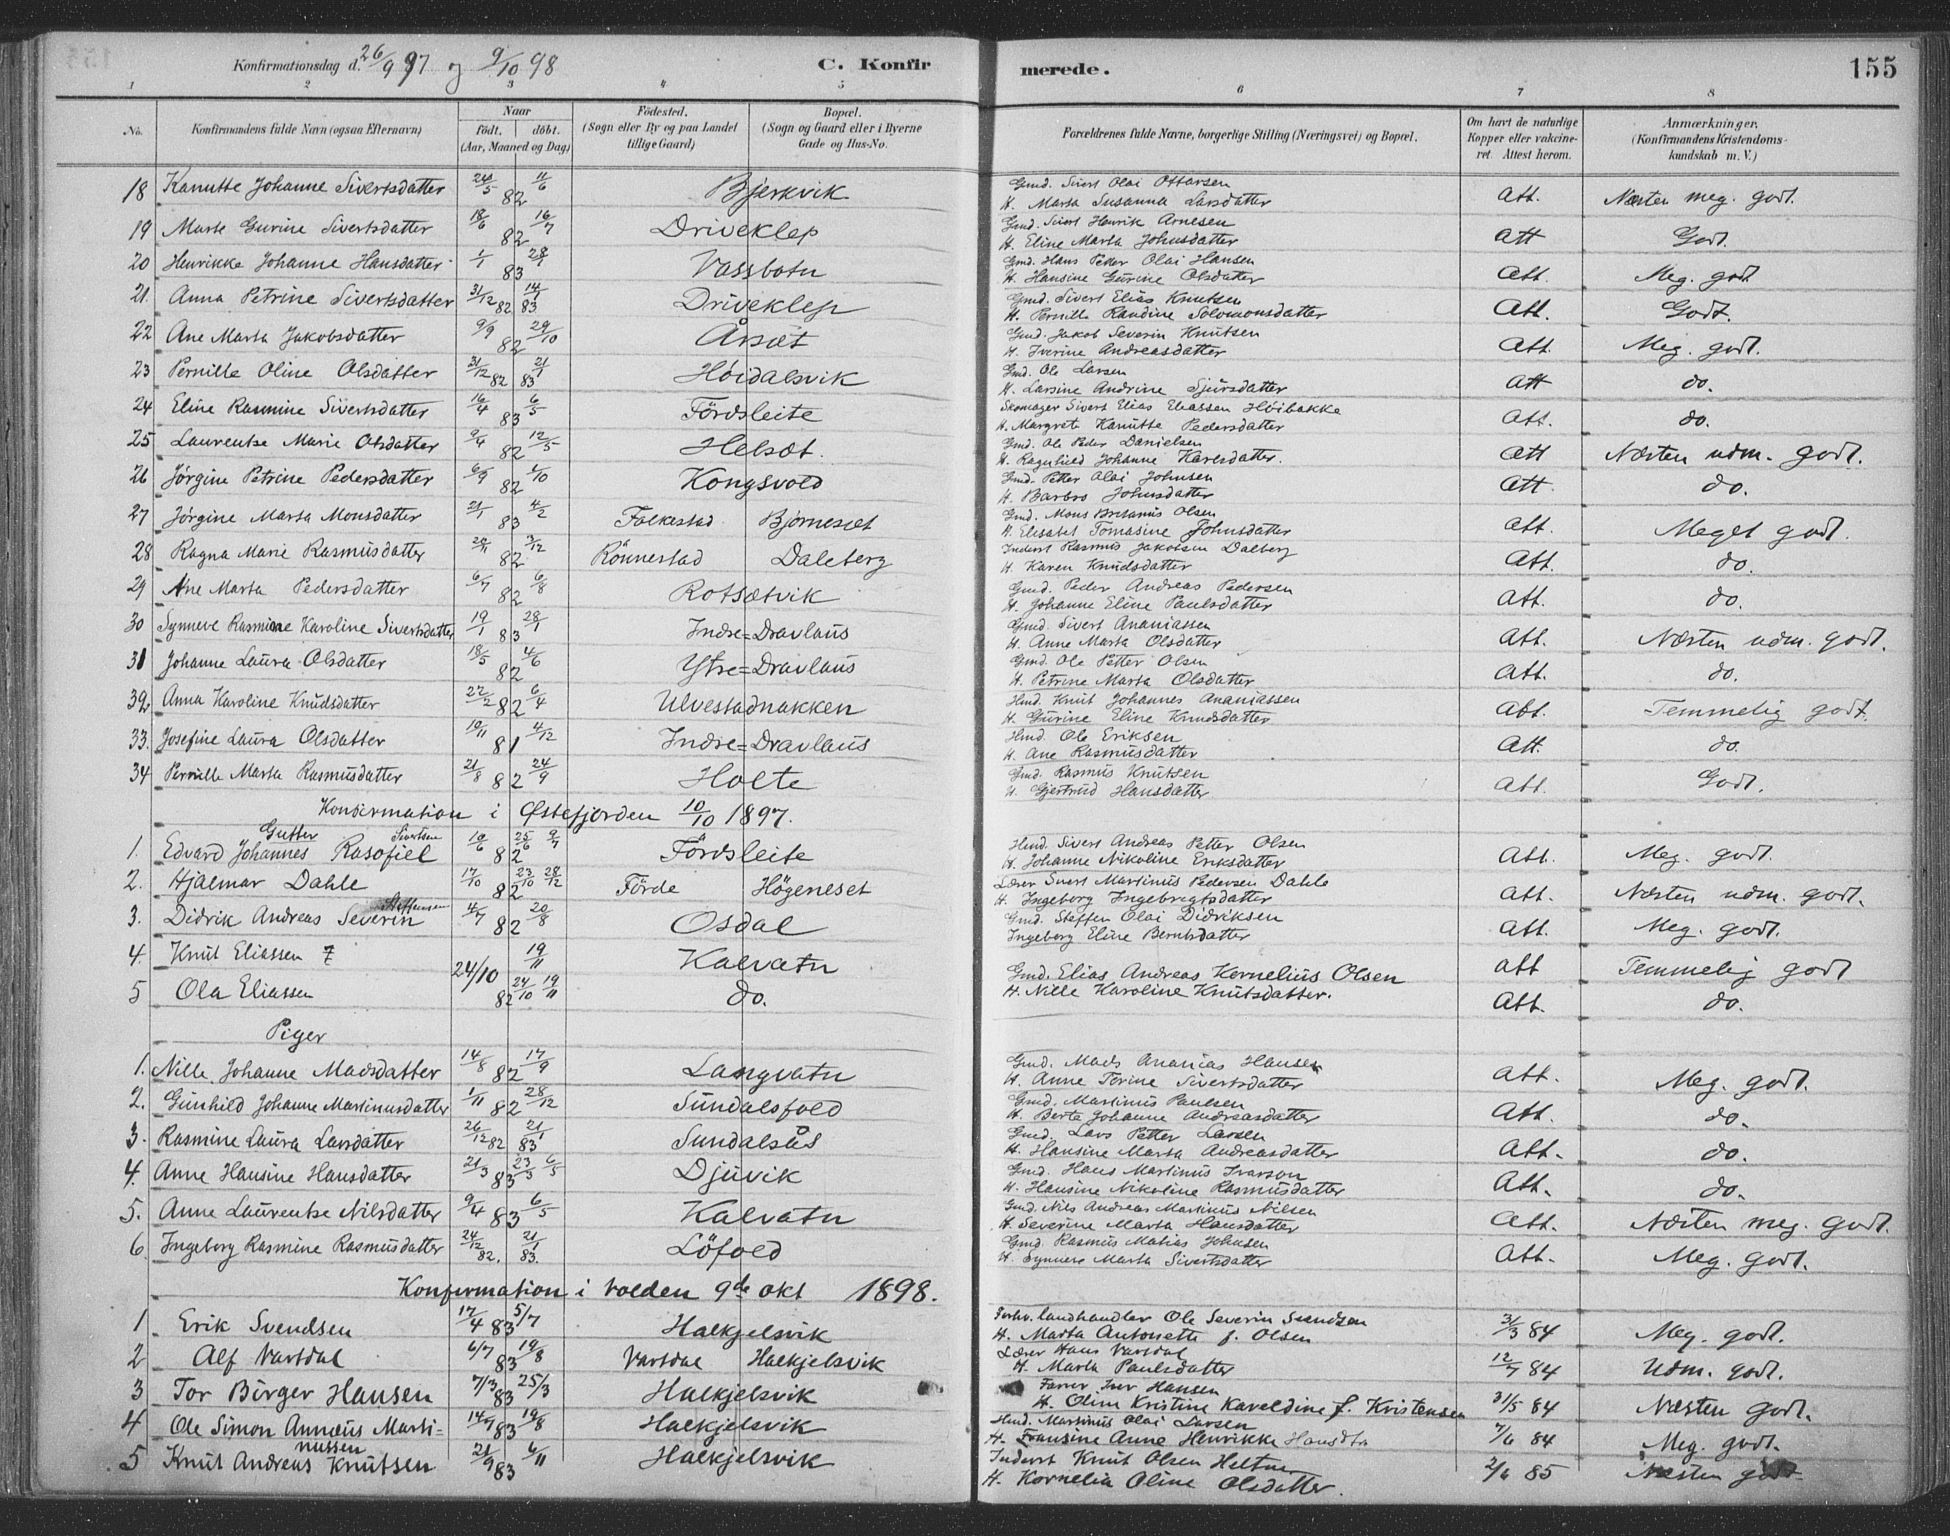 Konfirmationsdag d. 26/9 97 og 9/10 98 C. Konfirmerede. 155
1 2 3 4 5 6 7 8
No. Konfirmandens fulde Navn (ogsaa Efternavn) Naar födt. döbt. (Aar, Maaned og Dag) Födested. (Sogn eller By og paa Landet tillige Gaard) Bopæl. (Sogn og Gaard eller i Byerne Gade og Hus-No. Forældrenes fulde Navne, borgerlige Stilling (Næringsvei) og Bopæl. Om havt de naturlige Kopper eller vakcineret. Attest herom. Anmærkninger, (Konfirmandens Kristendomskundskab m. V.)
18 Kanutte Johanne Sivertsdatter 24/5 82 11/6 Bjerkvik Gmd. Sivert Olai Ottarsen H. Marta Susanna Larsdatter Att. Næsten meg. godt.
19 Marte Gurine Sivertsdatter 18/6 82 16/7 Driveklep Gmd. Sivert Henrik Arnesen H. Eline Marta Johnsdatter Att Godt.
20 Henrikke Johanne Hansdatter 1/1 83 28/1 Vassbotn Gmd. Hans Petter Olai Hansen H. Hansine Gurine Olsdatter Att. Meg. godt
21. Anna Petrine Sivertsdatter 31/12 82 14/1 83 Driveklep Gmd. Sivert Elias Knutsen H. Pernille Randine Solomonsdatter Att. Godt.
22 Ane Marta Jakobsdatter 9/9 82 29/10 Årsæt Gmd. Jakob Severin Knutsen H. Iverine Andreasdatter Att. Meg. godt.
23 Pernille Oline Olsdatter 31/12 82 21/1 83 Høidalsvik Gmd. Ole Larsen H. Larsine Andrine Sjursdatter Att do.
24 Eline Rasmine Sivertsdatter 16/4 83 6/5 Fördsleite Skomager Sivert Elias Eliassen Höibakke H. Margrete Kanutte Pedersdatter Att. do.
25 Laurentse Marie Olsdatter 9/4 82 12/5 Helsæt. Gmd. Ole Peder Danielsen H. Ragnhild Johanne Karlsdatter. Att Næsten udm. godt.
26 Jørgine Petrine Pedersdatter 6/9 82 1/10 Kongsvold Gmd. Petter Olai Johnsen H. Barbro Johnsdatter Att. do.
27 Jørgine Marta Monsdatter 21/1 83 4/2 Folkestad Bjørneset Gmd. Mons Bretanus Olsen H. Elisabet Tomasine Johnsdatter Att. Meget godt.
28 Ragna Marie Rasmusdatter 20/11 82 3/12 Rönnestad Daleberg Inderst Rasmus Jakobsen Dalberg H. Karen Knudsdatter Att. do.
29 Ane Marta Pedersdatter 6/7 82 6/8 Rotsætvik Gmd. Peder Andreas Pedersen H. Johanne Eline Paulsdatter Att. do.
30 Synneve Rasmine Karoline Sivertsdatter 19/1 83 28/1 Indre=Dravlaus Gmd. Sivert Ananiassen H. Anne Marta Olsdatter Att. Næsten udm. godt.
31 Johanne Laura Olsdatter 18/5 82 4/6 Ytre=Dravlaus Gmd. Ole Petter Olsen H. Petrine Marta Olsdatter Att. do.
32 Anna Karoline Knudsdatter 22/2 82 6/4 Ulvestadnakken Hmd. Knut Johannes Ananiassen H. Gurine Eline Knudsdatter Att. Temmelig godt.
33. Josefine Laura Olsdatter 10/11 81 4/12 Indre=Dravlaus Hmd. Ole Eriksen H. Ane Rasmusdatter Att. do.
34 Pernille Marta Rasmusdatter 21/8 82 24/9 Holte Gmd. Rasmus Knutsen H. Gjertrud Hansdatter Att. Godt.
Konfirmation i Østefjorden 10/10 1897.
Gutter
1. Edvard Johannes Rasofiel Sivertsen 10/6 82 25/6 9/7 Fördsleite Hmd. Sivert Andreas Petter Olsen H. Johanne Nikoline Eriksdatter Att. Meg. godt.
2. Hjalmar Dahle 17/10 82 23/10 28/12 Förde Högeneset Lærer Sivert Martinus Pedersen Dahle H. Ingeborg Ingebrigtsdatter Att. Næsten udm. godt.
3. Didrik Andreas Severin Steffensen 4/7 82 20/8 Osdal Gmd. Steffen Olai Didriksen Ingeborg Eline Berntsdatter Att. Meg. godt.
4. Knut Eliassen 19/11 Kalvatn Att Temmelig godt
24/10 82 Gmd. Elias Andreas Kornelius Olsen
5 Ola Eliassen 24/10 19/11 do. H. Nille Karoline Knutsdatter. Att. do.
Piger
1. Nille Johanne Madsdatter 14/8 82 17/9 Langvatn Gmd. Mads Ananias Hansen H. Anne Torine Sivertsdatter Att. Meg. godt.
2. Gunhild Johanne Martinusdatter 1/11 82 28/12 Sundalsfold Gmd. Martinus Paulsen H. Berte Johanne Andreasdatter Att. do.
3. Rasmine Laura Larsdatter 26/12 82 21/1 83 Sundalsås Gmd. Lars Petter Larsen H. Hansine Marta Andreasdatter Att. do.
4. Anne Hansine Hansdatter 21/3 83 23/3 6/5 Djuvik Gmd. Hans Martinus Ivarson H. Hansine Nikoline Rasmusdatter Att. do.
5. Anne Laurentse Nilsdatter 9/4 83 6/5 Kalvatn Gmd. Nils Andreas Martinus Nilsen H. Severine Marta Hansdatter Att. Næsten meg. godt.
6. Ingeborg Rasmine Rasmusdatter 24/12 82. 21/1 83. Löfold Gmd. Rasmus Matias Johnsen H. Synneve Marta Sivertsdatter Att. Meg. godt.
Konfirmation i Volden 9de okt 1898.
1 Erik Svendsen 17/4 83 5/7 Halkjelsvik Forhv. landhandler Ole Severin Svendsen H. Marta Antonette f. Olsen 3/3 84 Meg. godt.
2 Alf Vartdal 6/7 83 19/8 Vartdal Halkjelsvik Lærer Hans Vartdal H. Marta Paulsdatter 12/7 84 Udm. godt.
3 Tor Birger Hansen 7/3 83 25/3 Halkjelsvik Farver Iver Hansen H. Olina Kristine Karoldine f. Kristensen 31/5 84 Næsten godt.
4 Ole Simon Annæus Martinussen 14/7 83 19/8 Halkjelsvik Hmd. Martinus Olai Larsen H. Fransine Anne Henrikke Hansdtr 7/6 84 Meg. godt.
5 Knut Andreas Knutsen 21/9 83 4/11 Halkjelsvik Inderst Knut Olsen Heltne H. Kornelia Oline Olsdatter. 2/6 85 Næsten godt